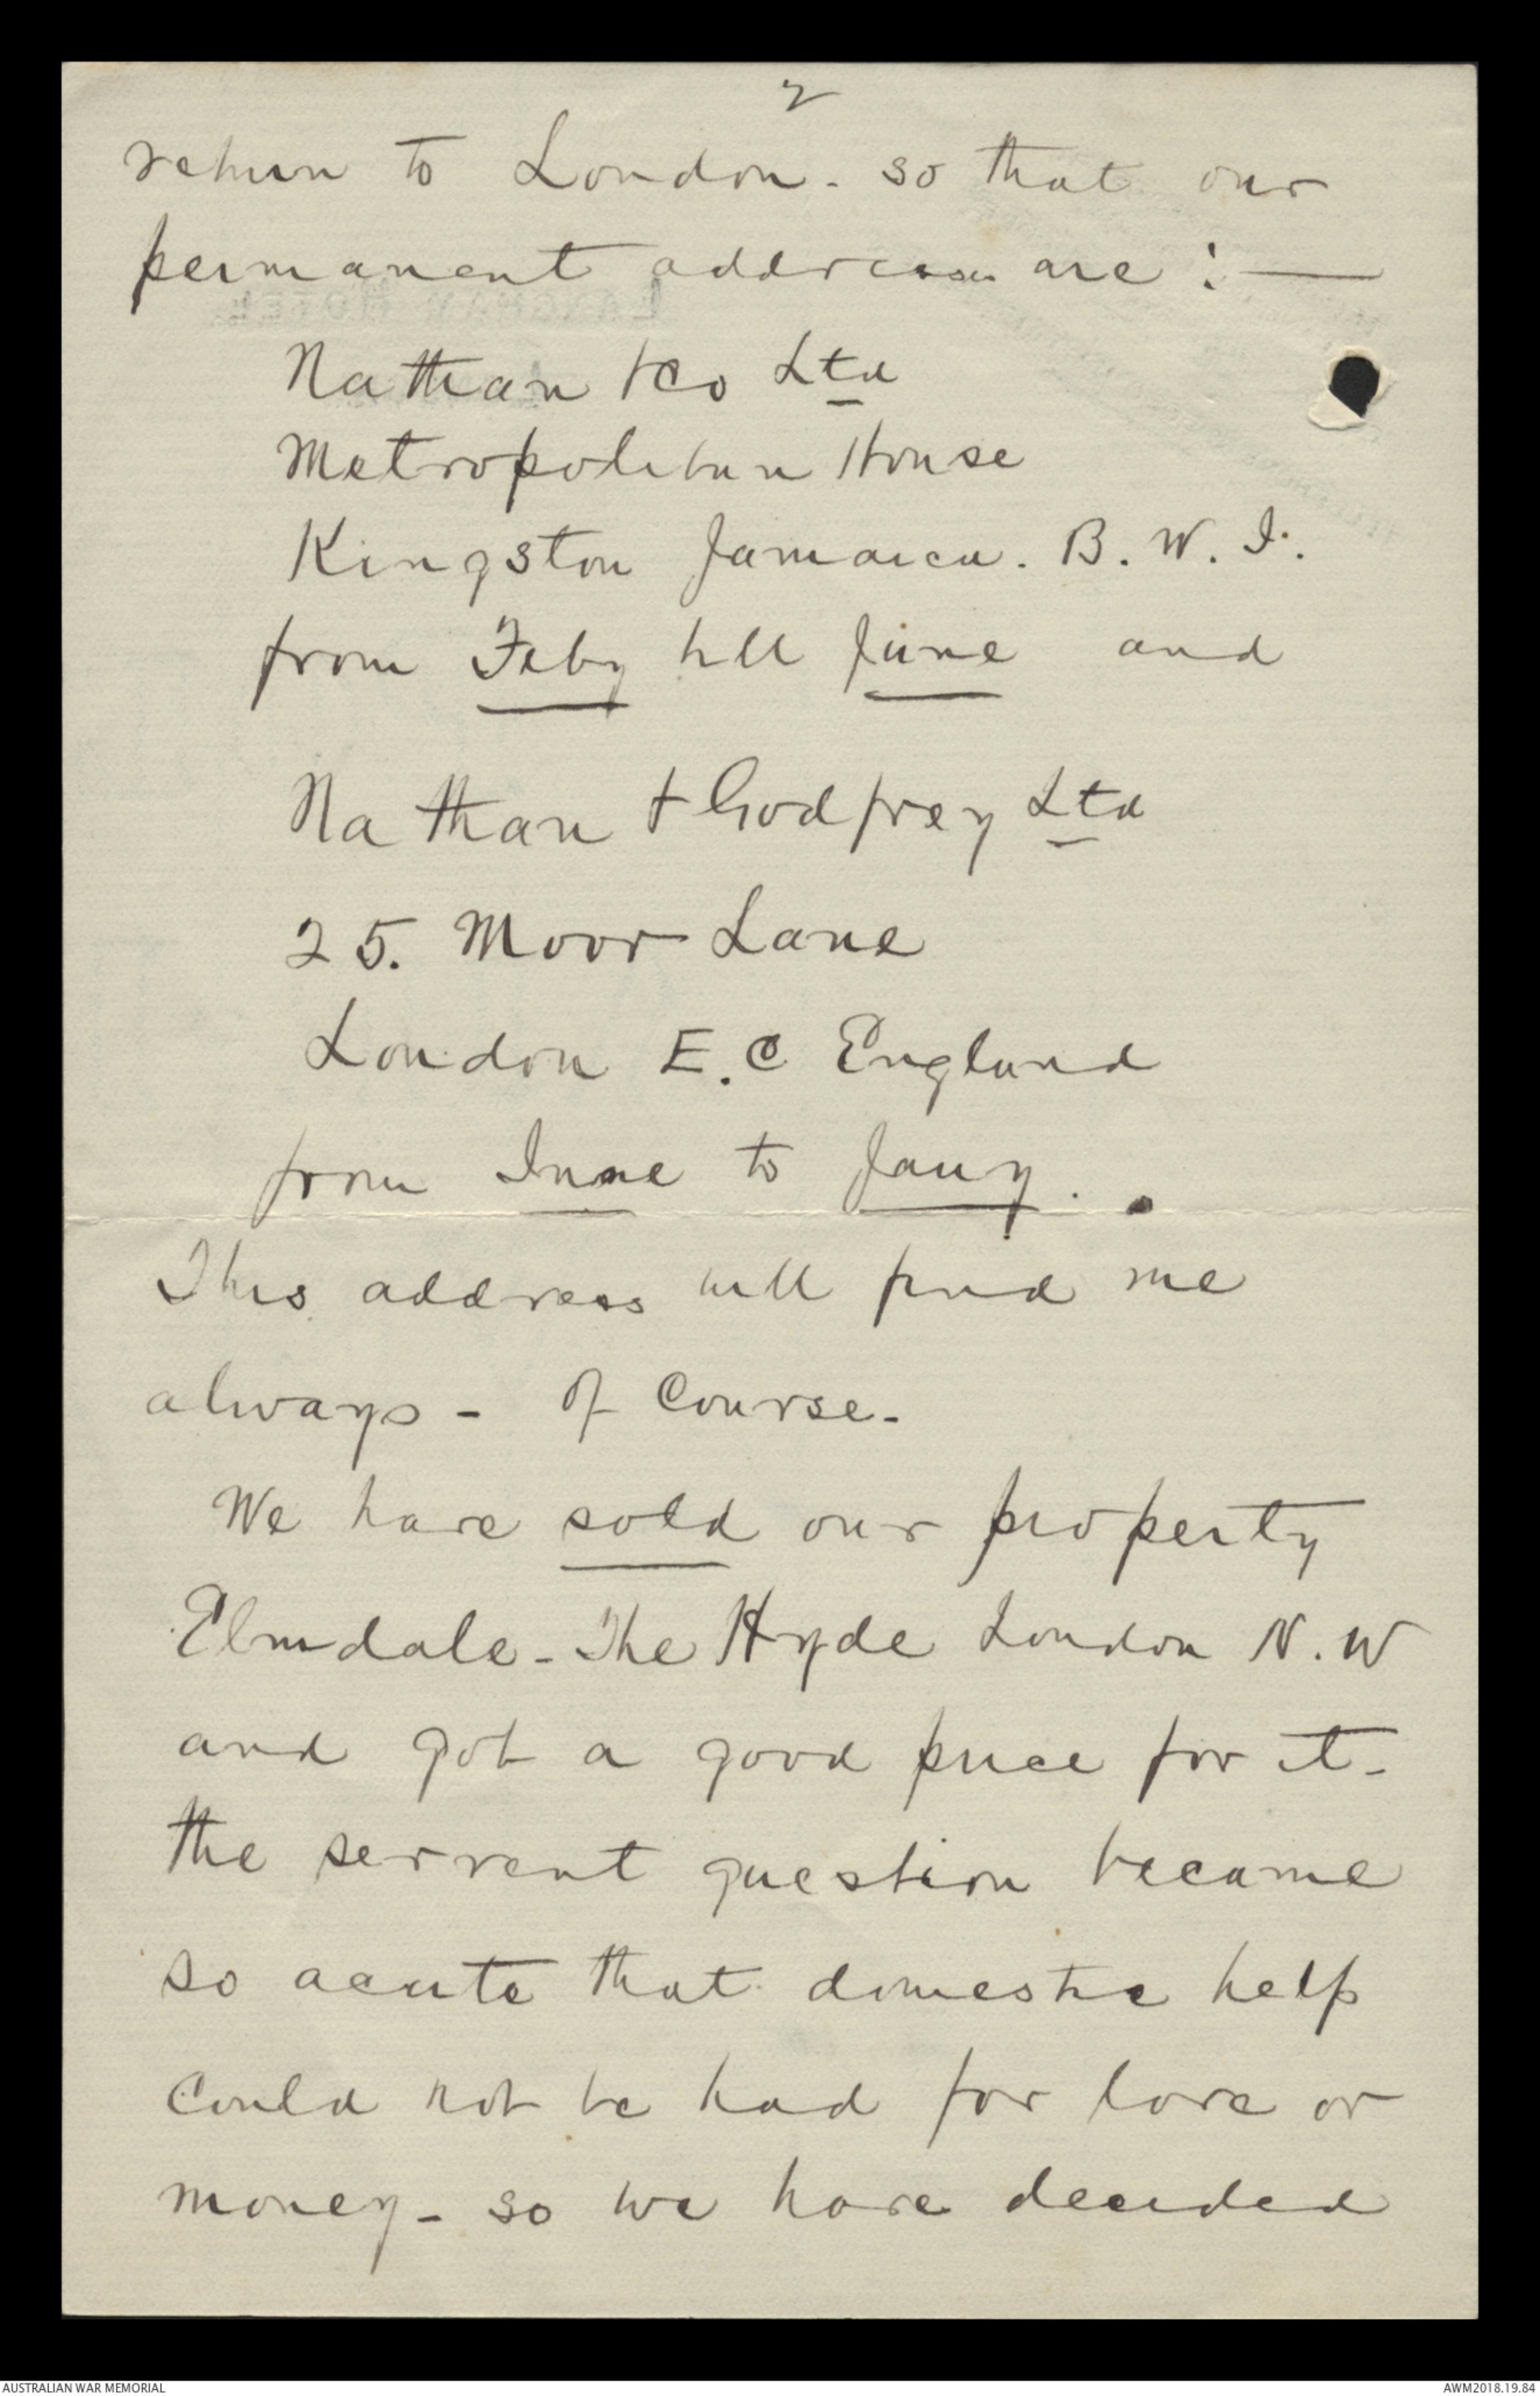 2
return to London - so that our
permanent addresses are : —
Nathan & Co Ltd
Metropolitan House
Kingston Jamaica. B. W. I.
from Feby till June and
Nathan & Godfrey Ltd
25. Moor Lane
London E.C England
from June to Jany.
This address will find me
always - of course -
We have sold our property
Elmdale - The Hyde London N.W
and got a good price for it -
the servant question became
so acute that domestic help
could not be had for love or
money - so we have decided
AUSTRALIAN WAR MEMORIAL
AWM2018.19.84